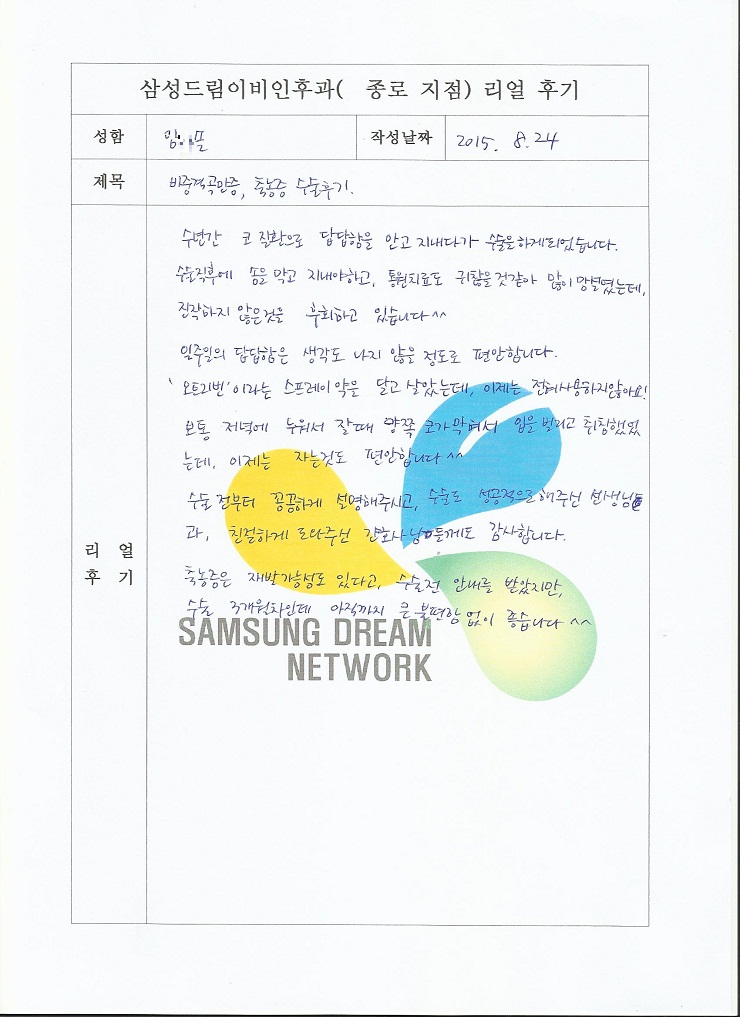 삼성드림이비인후과( 종로 지점) 리얼 후기
성함 임 작성날짜 2015. 8.24
제목 비중격곡만증, 축농증 수술후기.
리 얼
후 기
수년간 코 질환으로 답답함을 안고 지내다가 수술을 하게되었습니다.
수술직후에 솜을 막고 지내야하고, 통원치료도 귀찮을것같아 많이 망설였는데,
진작하지 않은것을 후회하고 있습니다^^
일주일의 답답함은 생각도 나지 않을 정도로 편안합니다.
'오트리빈'이라는 스프레이 약을 달고 살았는데, 이제는 전혀사용하지않아요!
보통 저녁에 누워서 잘때 양쪽 코가 막혀서 입을 벌리고 취침했었
는데, 이제는 자는것도 편안합니다^^
수술 전부터 꼼꼼하게 설명해주시고, 수술도 성공적으로해주신 선생님들
과, 친절하게 도와주신 간호사님들께도 감사합니다.
축농증은 재발가능성도 있다고, 수술전 안내를 받았지만,
수술 3개월차인데 아직까지 큰 불편함 없이 좋습니다^^
SAMSUNG DREAM
NETWORK